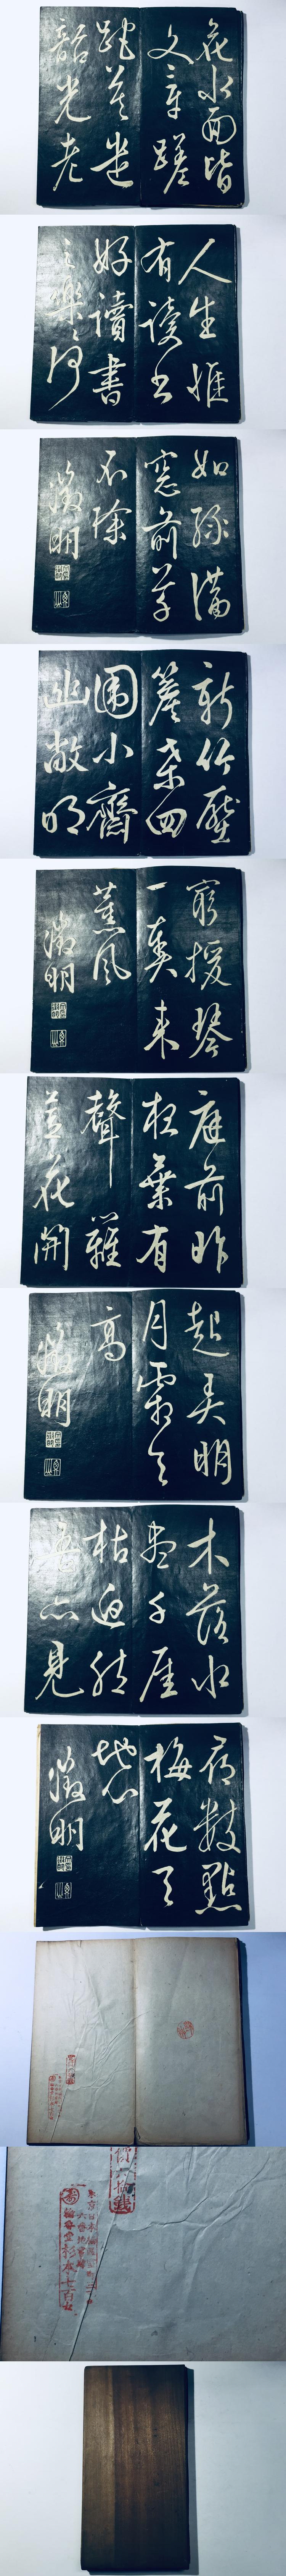 花水面皆
文章蹉
跎莫遣
韶光老
人生惟
有讀書
好讀書
之樂々何
如綠滿
窓前草
不除
徵明
新竹壓
簷桒四
圍小齋
幽敞明
窮援琴
一奏来
薰風
徵明
庭前昨
夜葉有
聲籬
荳花開
起弄明
月霜天
高
徵明
木落水
盡千崖
枯迥然
吾亦見
尋數點
梅花天
地心
徵明